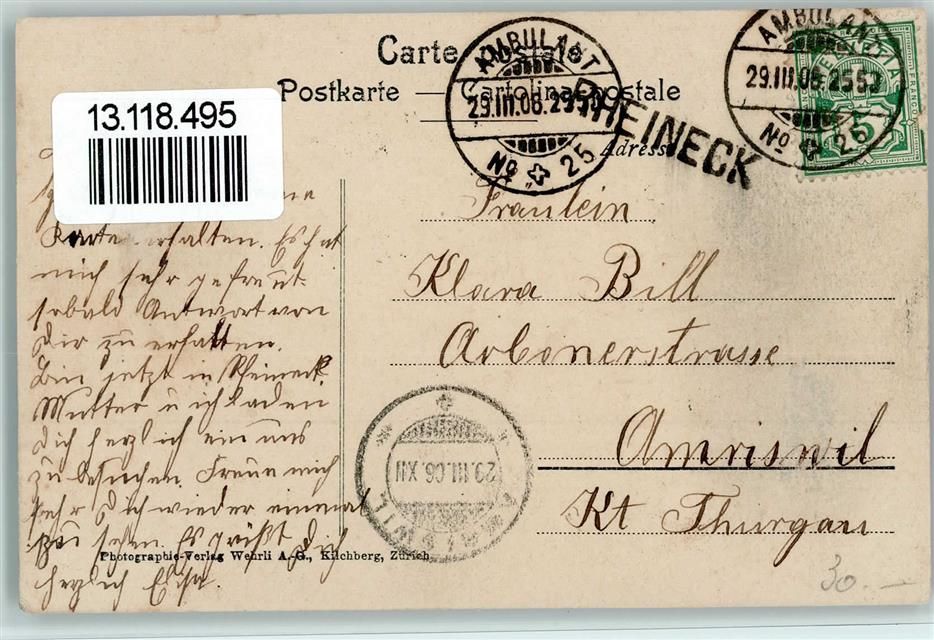 Carte postale
Postkarte — Cartolina postale
13.118.495
AMBULANT
29.III.06.2553
No 25
RHEINECK
AMBULANT
29.III.06.2553
No 25
HELVETIA
FRANCO
5
Adresse
Karte erhalten. Es hat
mich sehr gefreut
sobald Antwort von
Dir zu erhalten.
Bin jetzt in Rheineck.
Mutter u ich laden
dich herzlich ein uns
zu besuchen. Freue mich
sehr Dich wieder einmal
zu sehen. Es grüßt Dich
herzlich
Fräulein
Klara Bill
Arbonerstrasse
Amriswil
Kt Thurgau
29.III.06.XII
Photographie-Verlag Wehrli A.-G., Kilchberg, Zürich
30.—